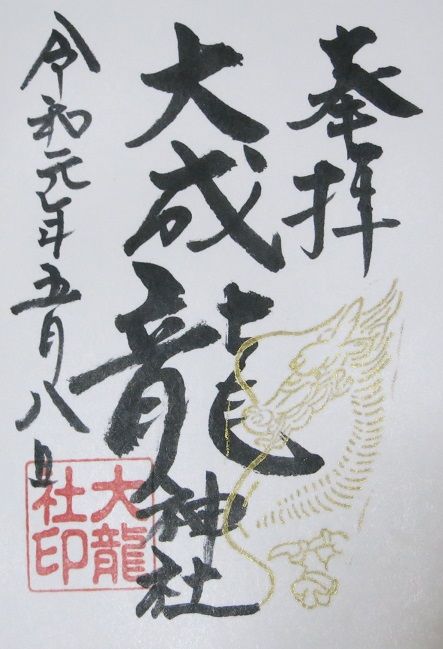 奉拝
大成龍神社
令和元年五月八日
大龍
社印